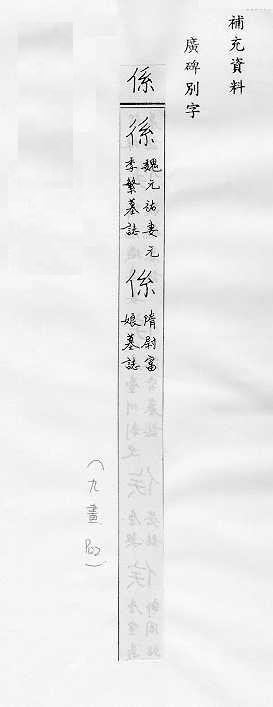 補充資料
廣碑別字
係
徐
魏元祐妻元
季繁墓誌
係
隋尉富
娘墓誌
(九畫 P02)